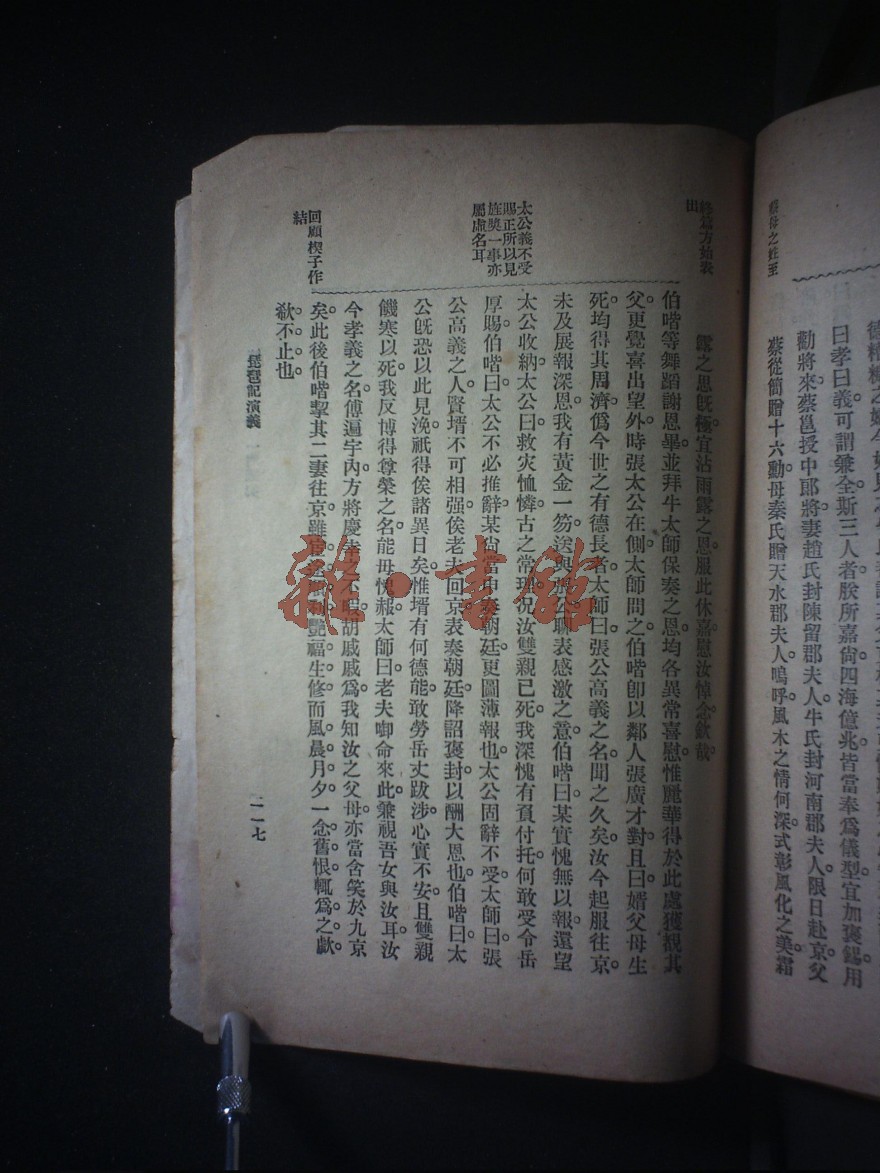 蔡母之姓至
終爲方始表
出
曰孝曰義可謂兼全斯三人者朕所嘉尙四海億兆皆當奉爲儀型宜加褒錫用
勸將來蔡邕授中郎將妻趙氏封陳留郡夫人牛氏封河南郡夫人限日赴京父
蔡從簡贈十六勳母秦氏贈天水郡夫人嗚呼風木之情何深式彰風化之美霜
露之思旣極宜沾雨露之恩服此休嘉慰汝悼念欽哉
伯喈等舞蹈謝恩畢並拜牛太師保奏之恩均各異常喜慰惟麗華得於此處獲覩其
父更覺喜出望外時張太公在側太師問之伯喈卽以鄰人張廣才對且曰婿父母生
死均得其周濟爲今世之有德長者太師曰張公高義之名聞之久矣汝今起服往京
未及展報深恩我有黃金一笏送與張公聊表感激之意伯喈曰某實愧無以報還望
太公收納太公曰救灾恤憐古之常理况汝雙親已死我深愧有負付托何敢受令岳
厚賜伯喈曰太公不必推辭某尙當申奏朝廷更圖薄報也太公固辭不受太師曰張
公高義之人賢壻不可相强俟老夫回京表奏朝廷降詔褒封以酬大恩也伯喈曰太
公旣恐以此見浼祇得俟諸異日矣惟壻有何德能敢勞岳丈跋涉心實不安且雙親
饑寒以死我反博得尊榮之名能毋愧赧太師曰老夫啣命來此兼視吾女與汝耳汝
今孝義之名傳遍宇內方將慶幸之不暇胡戚戚爲我知汝之父母亦當含笑於九京
矣此後伯喈挈其二妻往京雖艷福生修而風晨月夕一念舊恨輒爲之歔
欷不止也
太公義不受
賜正所以見
旌奬一事亦
屬虛名耳
回顧楔子作
結
琵琶記演義
一一七
雜·書館